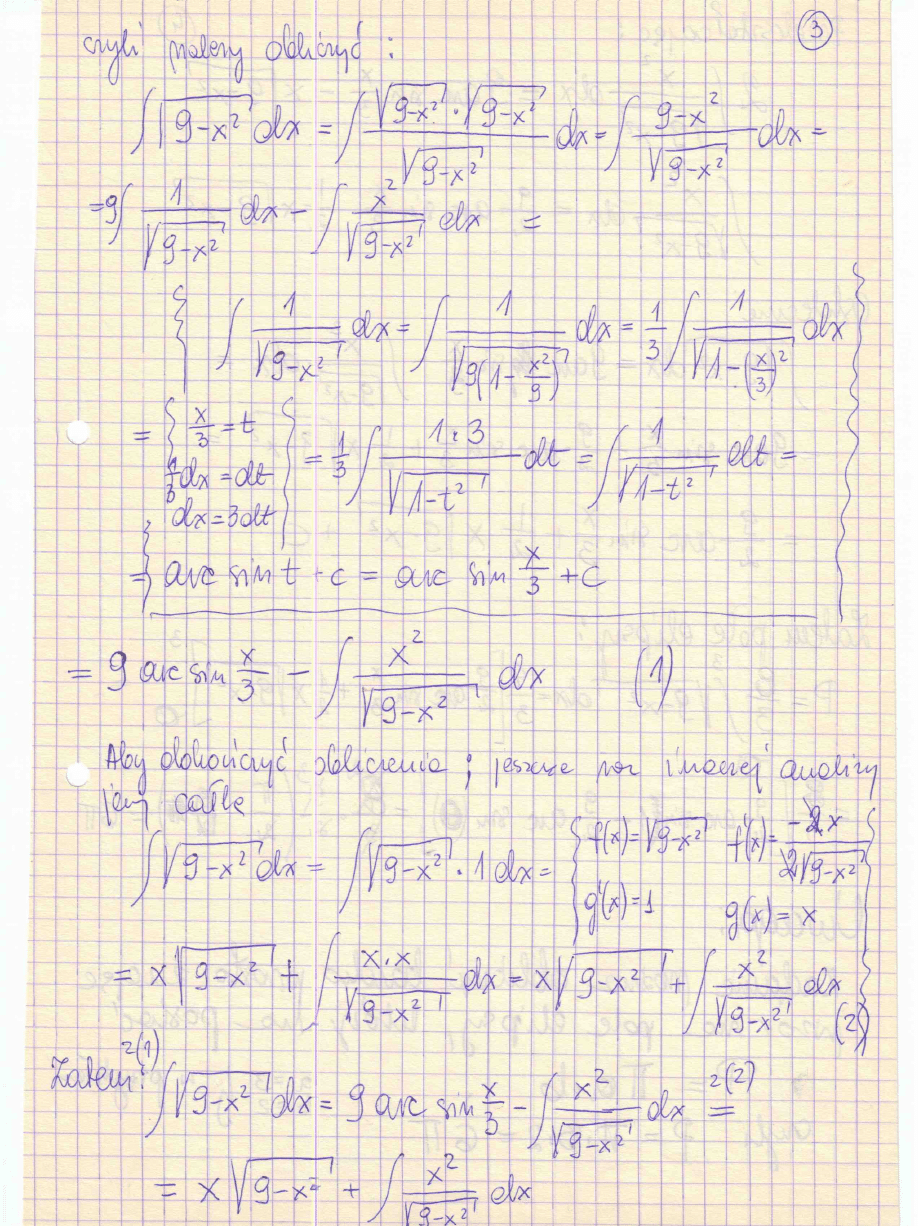 3
czyli należy obliczyć :
∫√(9-x²) dx = ∫ (√(9-x²) · √(9-x²))/√(9-x²) dx = ∫ (9-x²)/√(9-x²) dx =
= 9∫ 1/√(9-x²) dx - ∫ x²/√(9-x²) dx =
{ ∫ 1/√(9-x²) dx = ∫ 1/√(9(1-x²/9)) dx = 1/3 ∫ 1/√(1-(x/3)²) dx
= { x/3 = t
1/3 dx = dt
dx = 3dt } = 1/3 ∫ (1·3)/√(1-t²) dt = ∫ 1/√(1-t²) dt =
= arc sin t + c = arc sin x/3 + c }
= 9 arc sin x/3 - ∫ x²/√(9-x²) dx (1)
Aby dokończyć obliczenia ; jeszcze raz inaczej analizu
jemy całkę
∫√(9-x²) dx = ∫√(9-x²) · 1 dx = { f(x) = √(9-x²) f'(x) = -2x/(2√(9-x²))
g'(x) = 1 g(x) = x }
= x√(9-x²) + ∫ (x·x)/√(9-x²) dx = x√(9-x²) + ∫ x²/√(9-x²) dx (2)
Zatem: z(1)
∫√(9-x²) dx = 9 arc sin x/3 - ∫ x²/√(9-x²) dx = z(2)
= x√(9-x²) + ∫ x²/√(9-x²) dx